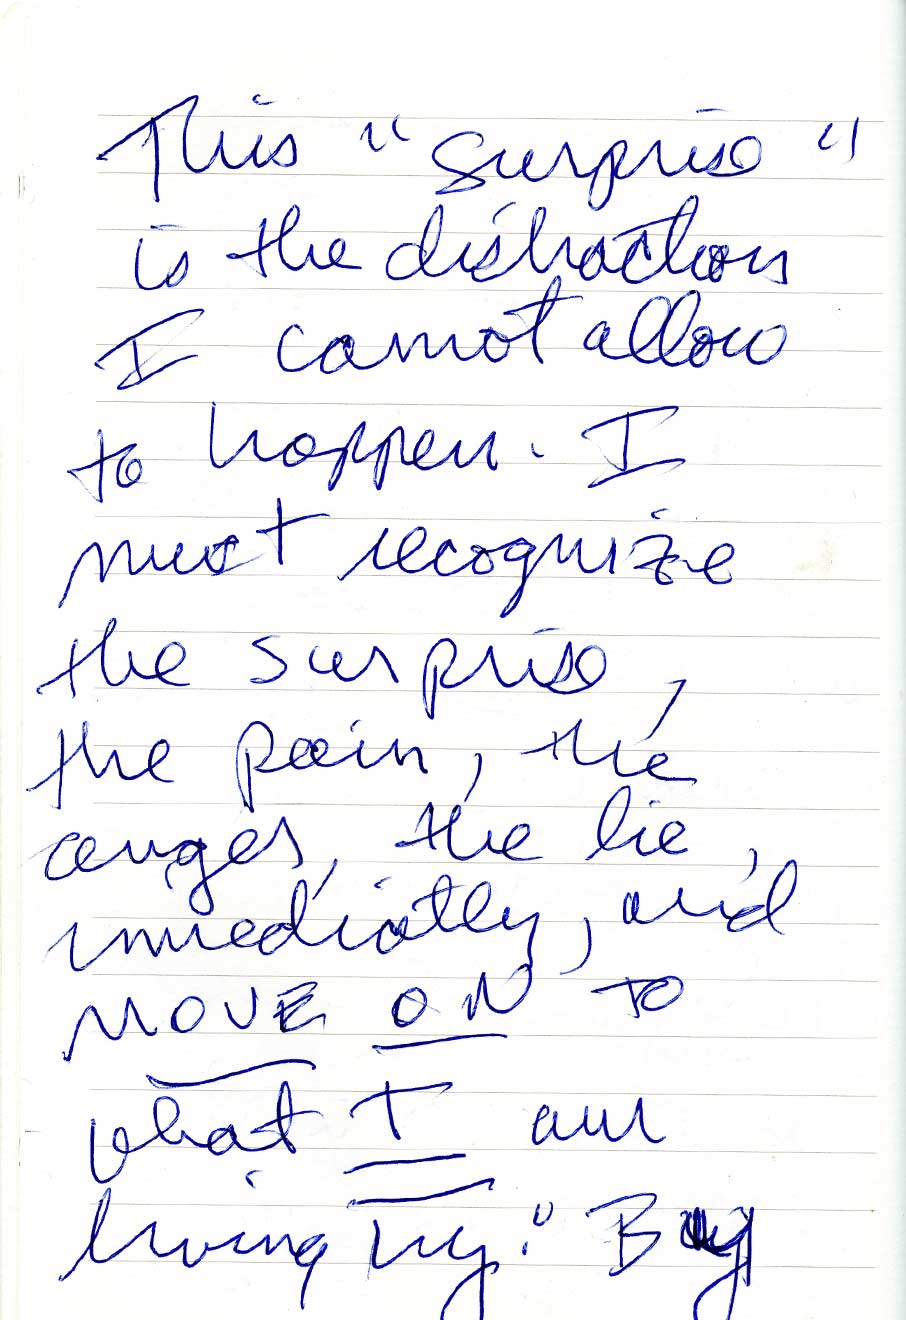 This "surprise"
is the distraction
I cannot allow
to happen. I
must recognize
the surprise,
the pain, the
anger, the lie,
immediatly, and
MOVE ON TO
what I am
living